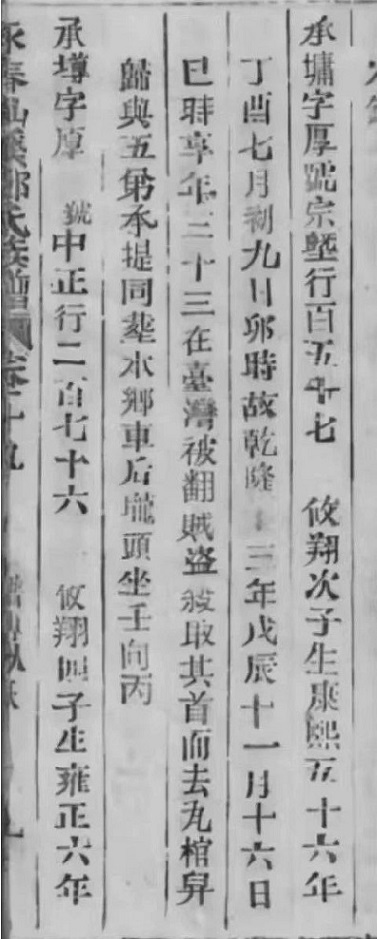 承墉字厚號宗塾行百五十七 攸翔次子生康熙五十六年
丁酉七月初九日卯時故乾隆十三年戊辰十一月十六日
巳時享年三十三在臺灣被翻賊盜殺取其首而去丸棺舁
歸與五弟承提同塟本鄉車后壠頭坐壬向丙
承墫字厚 號中正行二百七十六 攸翔四子生雍正六年
永春 氏族譜 卷二十九